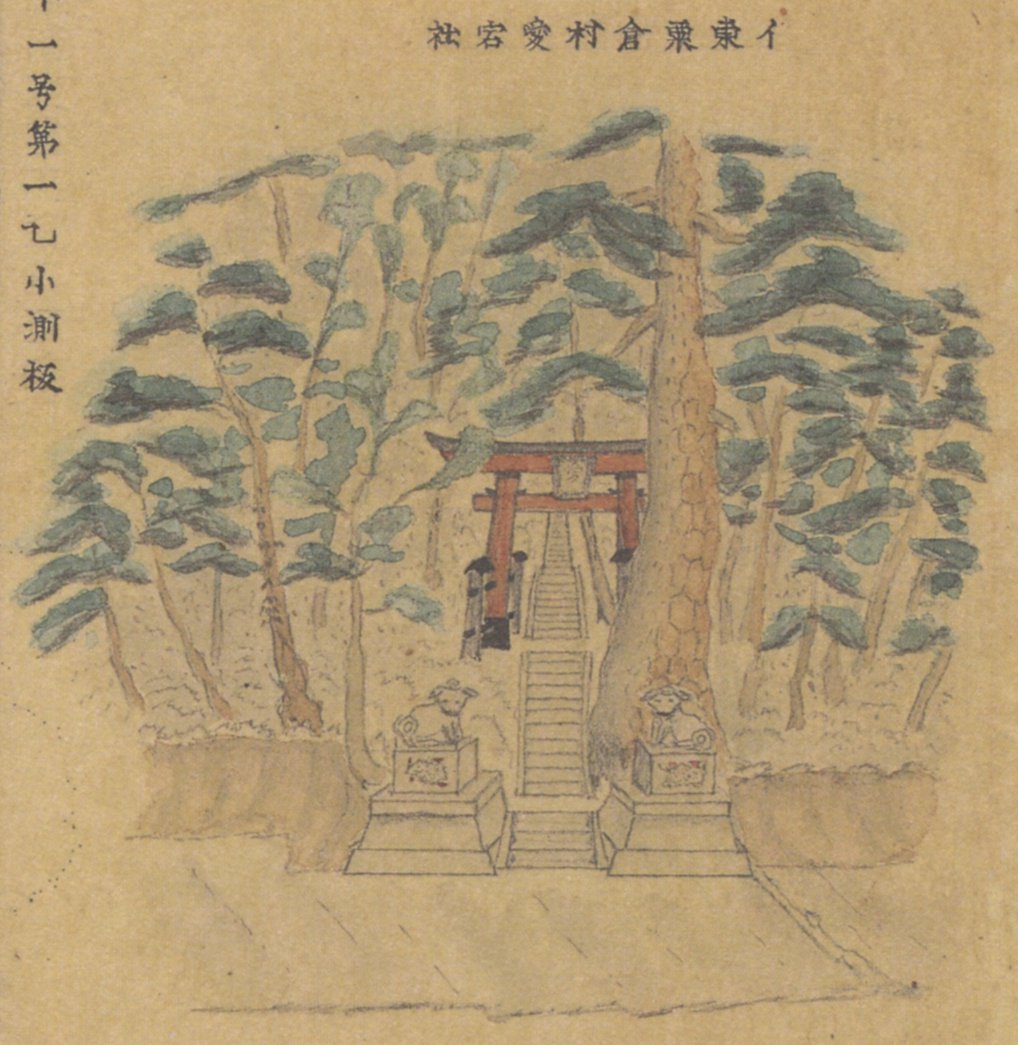 イ東粟倉村愛宕社
一号第一七小測板